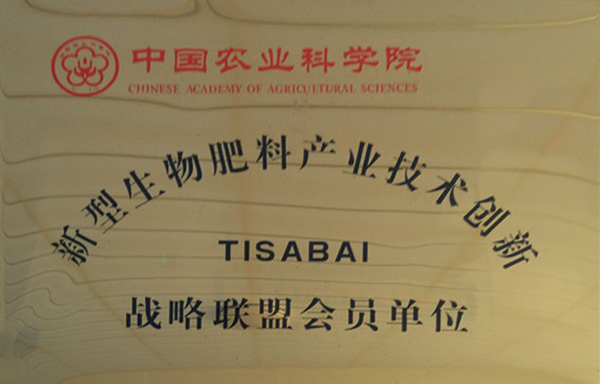 中国农业科学院
CHINESE ACADEMY OF AGRICULTURAL SCIENCES
新型生物肥料产业技术创新
TISABAI
战略联盟会员单位